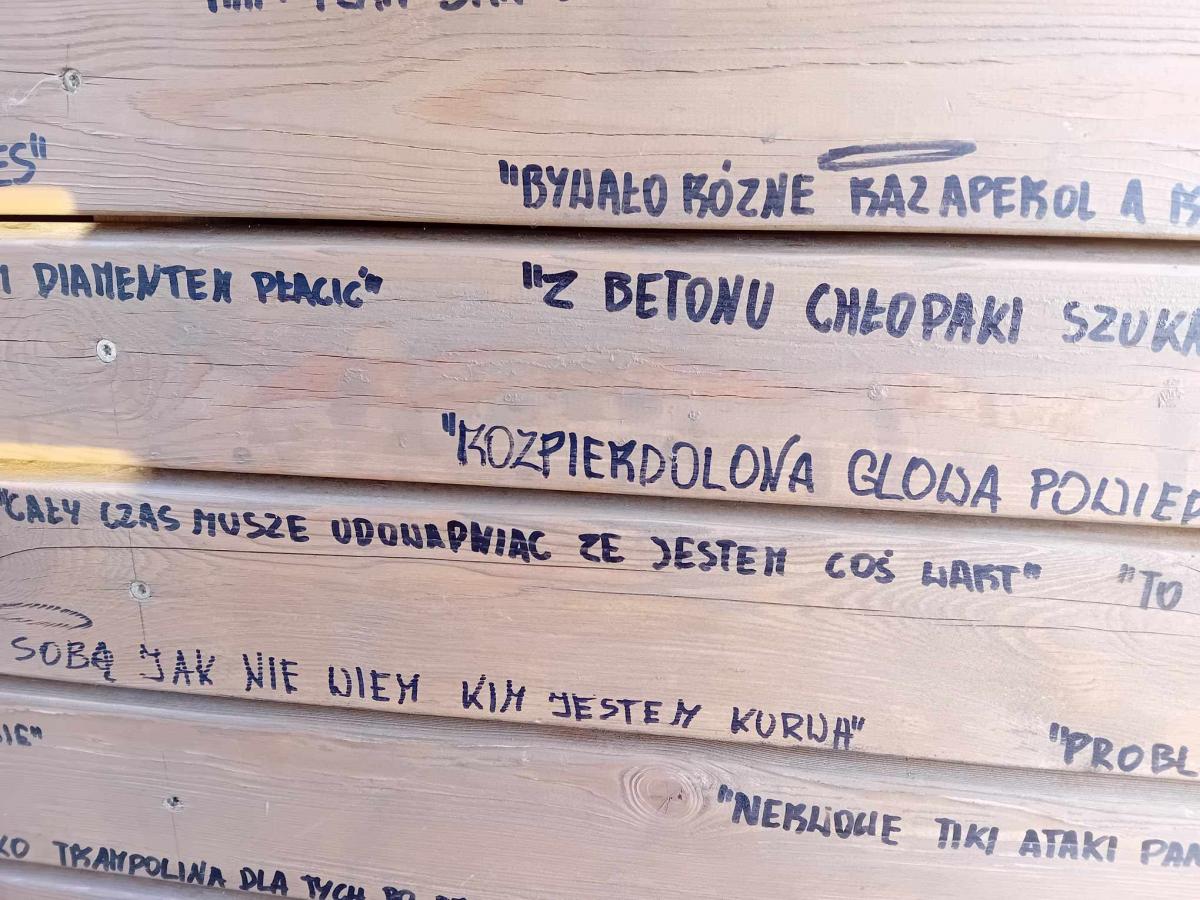 ES"
"BYWAŁO RÓZNE RAZ APEROL A
DIAMENTEM PŁACIĆ" "Z BETONU CHŁOPAKI SZUKA
"ROZPIERDOLONA GLOWA POWIED
"CAŁY CZAS MUSZE UDOWADNIAC ZE JESTEM COŚ WART" "TO
SOBĄ JAK NIE WIEM KIM JESTEM KURWA"
SIE" "PROBL
"NERWOWE TIKI ATAKI PAN
KO TRAMPOLINA DLA TYCH